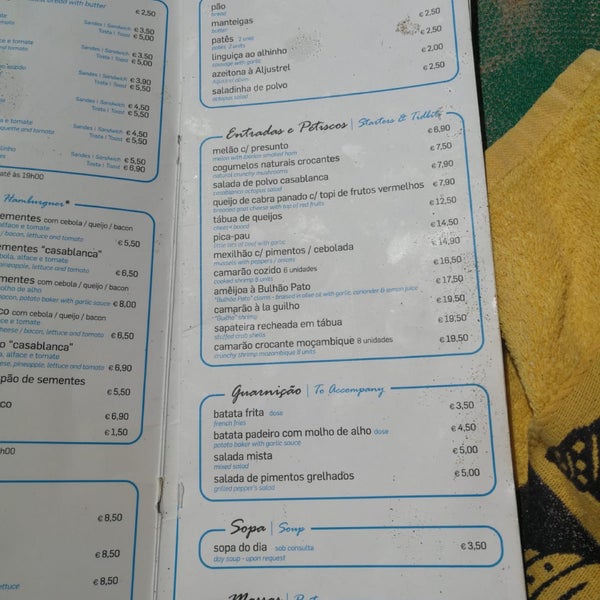 bread with butter
€ 2,50
e tomate
and tomato
Sandes | Sandwich € 3,50
Tosta | Toast € 5,00
Sandes | Sandwich € 3,50
Tosta | Toast € 5,00
Sandes | Sandwich € 3,90
Tosta | Toast € 5,50
Sandes | Sandwich € 4,50
Tosta | Toast € 5,50
e tomate
uette and tomato
Sandes | Sandwich € 4,50
Tosta | Toast € 5,00
Sandes | Sandwich € 5,50
Tosta | Toast € 6,90
até às 19h00
Hamburguer*
sementes com cebola / queijo / bacon
alface e tomate
/ bacon, lettuce and tomato
€ 5,50
ementes "casablanca"
bola, alface e tomate
pineapple, lettuce and tomato
€ 6,50
mentes com cebola / queijo / bacon
olho de alho
acon, potato baker with garlic sauce
€ 8,00
co com cebola / queijo / bacon
e tomate
heese / bacon, lettuce and tomato
€ 6,50
o "casablanca"
a, alface e tomate
ese, pineapple, lettuce and tomato
€ 6,90
pão de sementes
€ 5,50
co
€ 6,90
€ 1,50
h00
€ 8,50
€ 8,50
ettuce
€ 8,50
pão
bread
manteigas
butter
€ 2,50
patês 2 uni.
patés 2 units
€ 2,50
linguiça ao alhinho
sausage with garlic
€ 2,00
azeitona à Aljustrel
Aljustrel olives
€ 2,50
saladinha de polvo
octopus salad
Entradas e Petiscos | Starters & Tidbits
melão c/ presunto
€ 6,90
cogumelos naturais crocantes
natural crunchy mushrooms
€ 7,50
salada de polvo casablanca
casablanca octopus salad
€ 7,90
queijo de cabra panado c/ topi de frutos vermelhos
breaded goat cheese with top of red fruits
€ 7,90
tábua de queijos
cheese board
€ 12,50
pica-pau
little bits of beef with garlic
€ 14,50
mexilhão c/ pimentos / cebolada
mussels with peppers / onions
€ 14,90
camarão cozido 6 unidades
cooked shrimp 6 units
€ 16,50
amêijoa à Bulhão Pato
"Bulhão Pato" clams - braised in olive oil with garlic, coriander & lemon juice
€ 17,50
camarão à la guilho
"Guilho" shrimp
€ 19,50
sapateira recheada em tábua
stuffed crab shells
€ 19,50
camarão crocante moçambique 8 unidades
crunchy shrimp mozambique 8 units
€ 19,50
Guarnição | To Accompany
batata frita dose
french fries
€ 3,50
batata padeiro com molho de alho dose
potato baker with garlic sauce
€ 4,50
salada mista
mixed salad
€ 5,00
salada de pimentos grelhados
grilled pepper's salad
€ 5,00
Sopa | Soup
sopa do dia sob consulta
day soup - upon request
€ 3,50
Massas